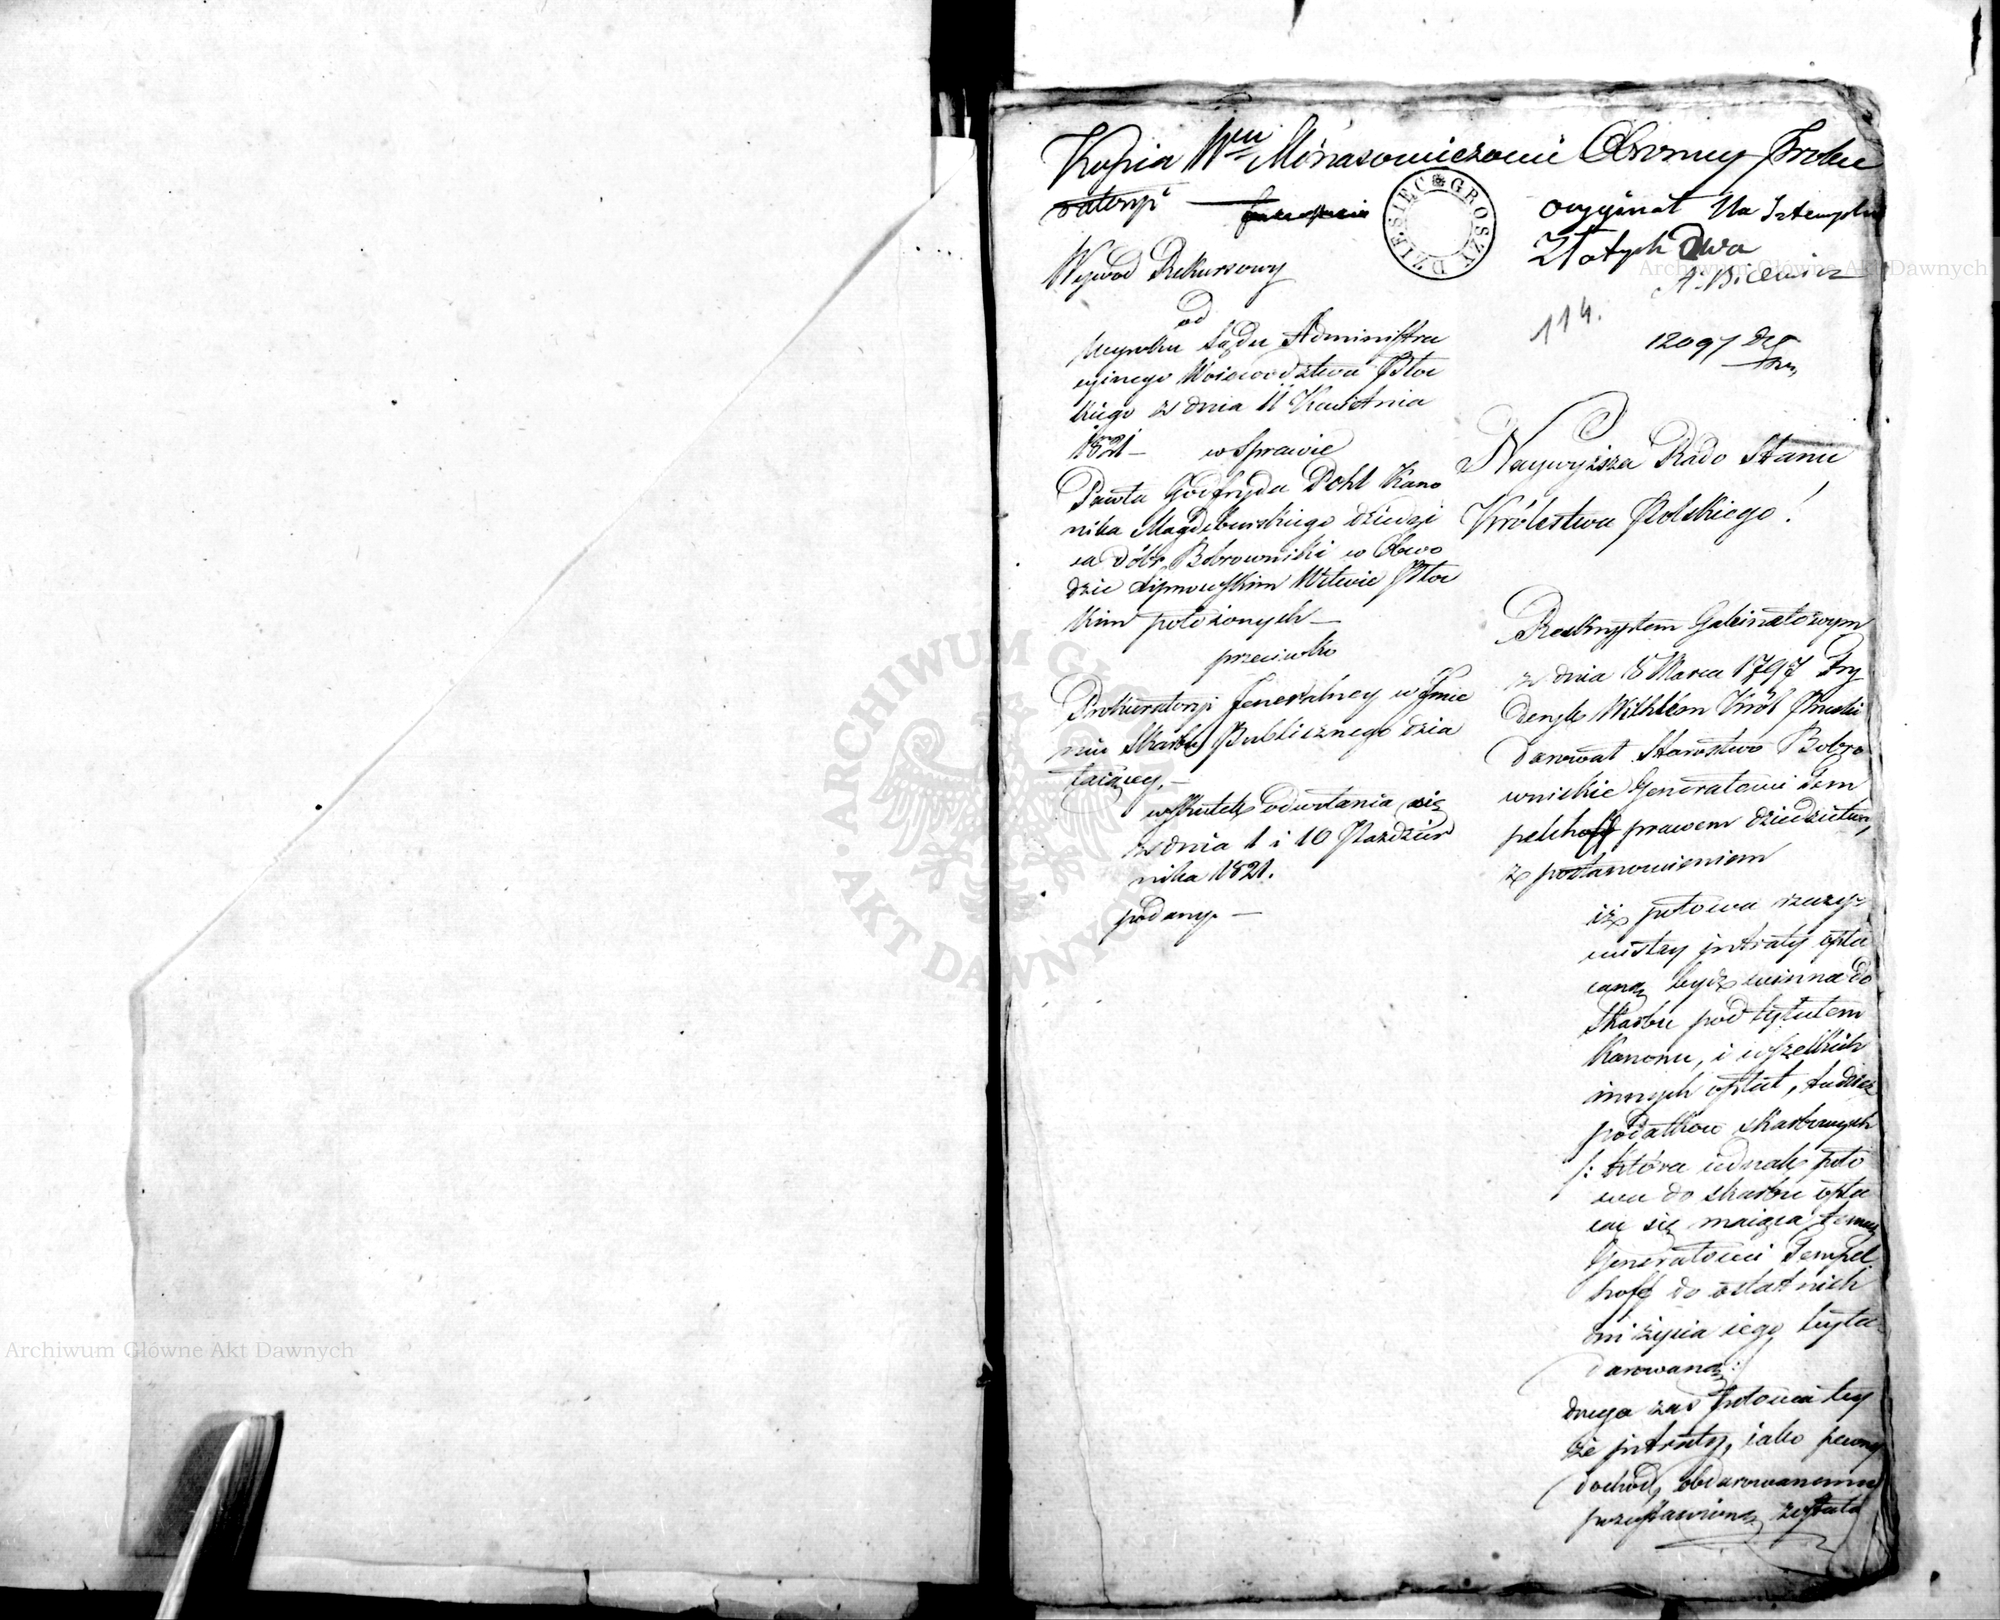 Kopia Wmu Monasowiczowi Obrony Proku
ratoryi
DZIESIĘĆ GROSZY
oryginał Na Sztemplu
Złotych Dwa
114.
12097
Wywód Rekursowy
od
wyroku Sądu Administra
cyinego Woiewództwa Płoc
kiego z dnia 11 Kwietnia
1821 — w Sprawie
Pawła Godfryda Pohl Kano
nika Magdeburskiego dziedzi
ca dóbr Bobrowniki w Obwo
dzie Lipnowskim Wdztwie Płoc
kim położonych —
przeciwko
Prokuratoryi Jeneralney w Jmie
niu Skarbu Publicznego dzia
łaiącey, —
w skutek odwołania się
z dnia 1 i 10 Paździer
nika 1821.
podany. —
Naywyższa Rado Stanu
Królestwa Polskiego!
Reskryptem Gabinetowym
z dnia 8 Marca 1797 Fry
deryk Wilhelm Król Pruski
darował Starostwo Bobro
wnickie Generałowi Tem
pelhoff prawem dziedzictwa,
z postanowieniem
iż połowa rzeczy=
wistey intraty opła
caną bydź winna do
Skarbu pod tytułem
Kanonu, i wszelkich
innych opłat, tudzież
podatków skarbowych
/: która iednak poło
wa do skarbu opła
cać się maiąca temuż
Generałowi Tempel
hoff do ostatnich
dni życia iego była
darowaną :/
druga zaś połowa tey
że intraty, iako pewny
dochód, obdarowanemu
pozostawioną została
ARCHIWUM GŁÓWNE AKT DAWNYCH
Archiwum Główne Akt Dawnych
Archiwum Główne Akt Dawnych